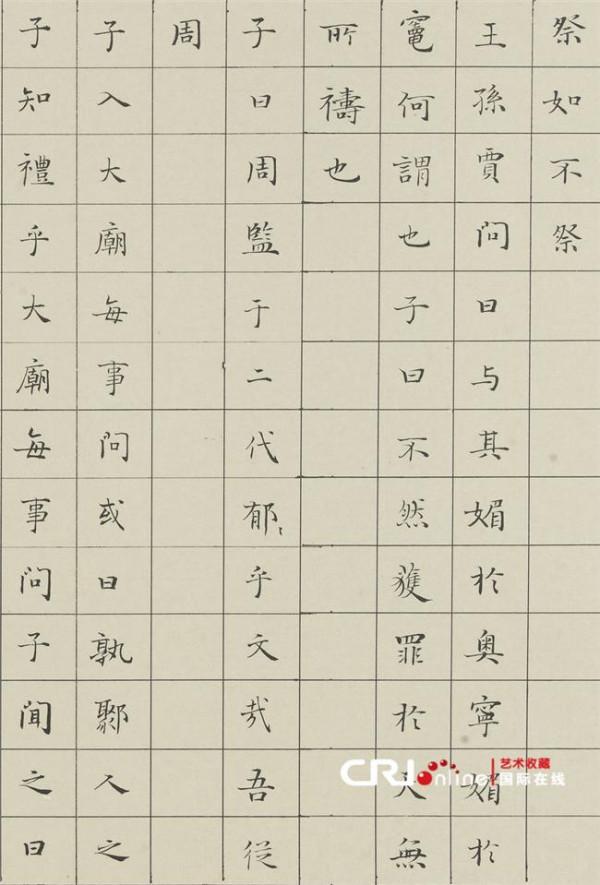 祭如不祭
王孫賈问曰与其媚於奥寧媚於
竈何謂也子曰不然獲罪於天無
所禱也
子曰周監于二代郁〻乎文哉吾從
周
子入大廟每事问或曰孰鄹人之
子知禮乎大廟每事问子闻之曰
CRI Online
艺术收藏
国际在线